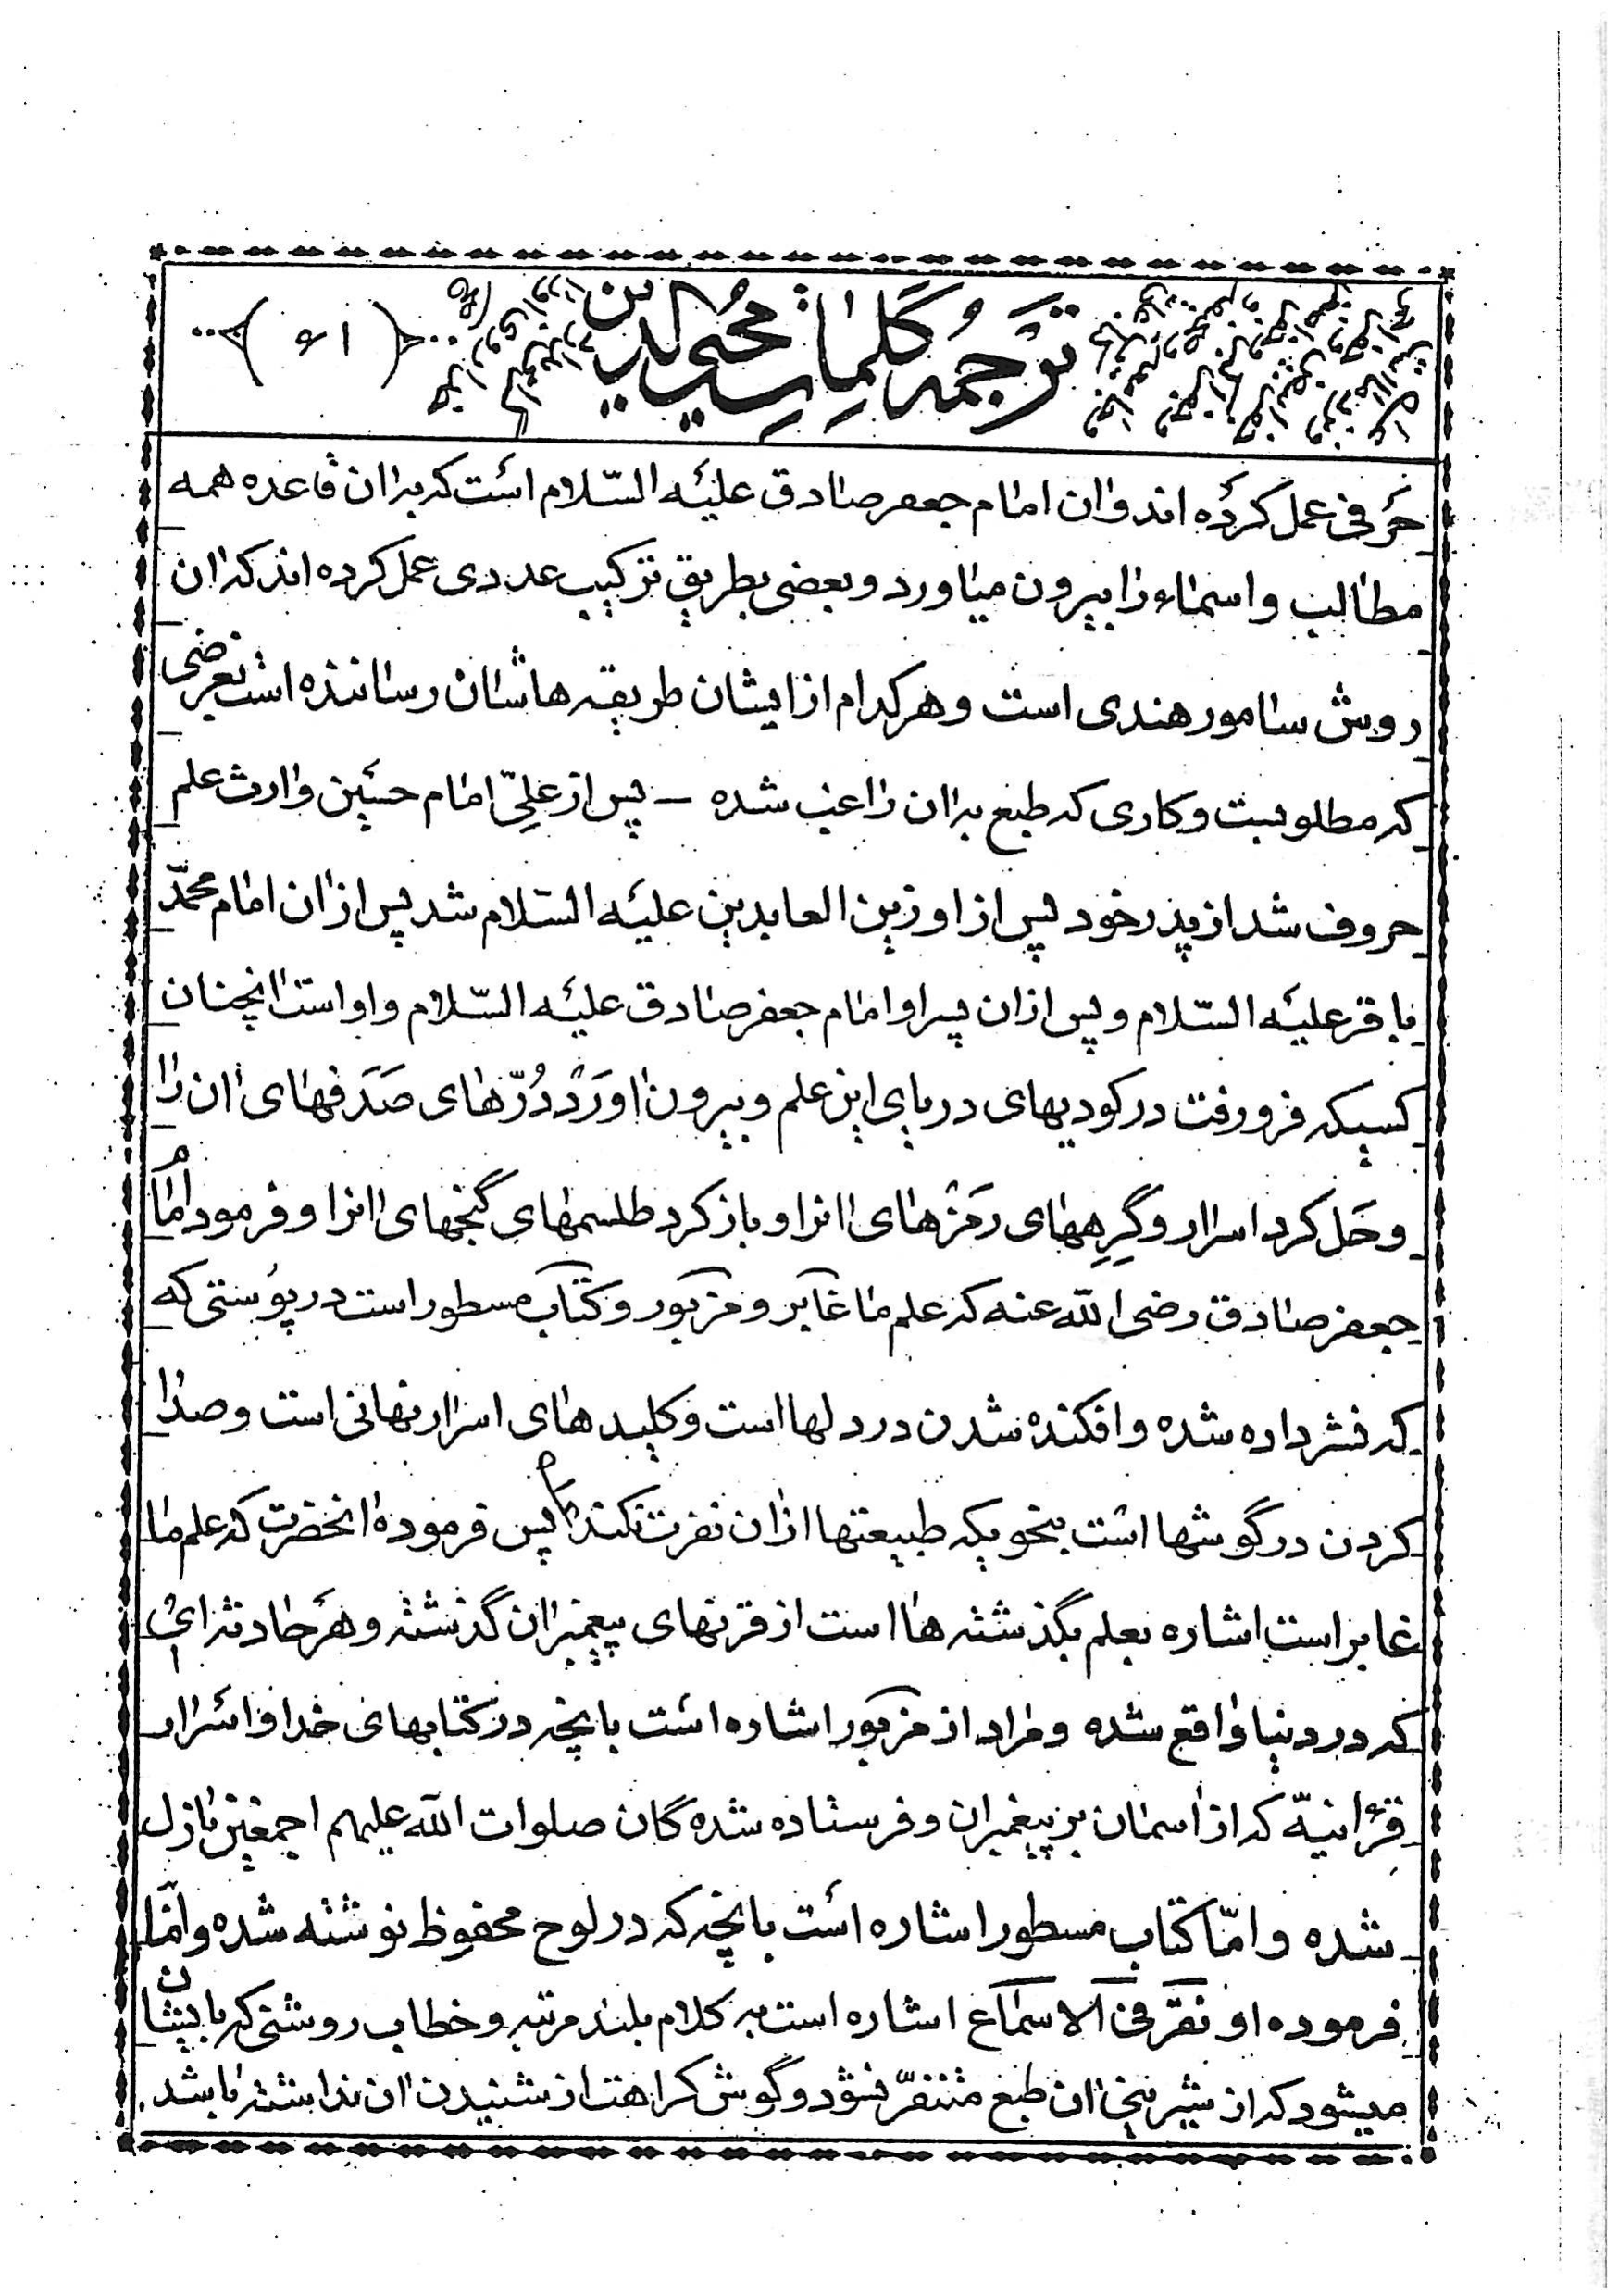 ترجمه کلمات محیی الدین
(۶۱)
حرفی عمل کرده اند و ان امام جعفر صادق علیه السّلام است که بدان قاعده همه
مطالب و اسماء را بیرون میاورد و بعضی بطریق ترکیب عددی عمل کرده اند که ان
روش سامور هندی است و هر کدام از ایشان طریقه هاشان رساننده است بغرضی
که مطلوبست و کاری که طبع بدان راغب شده – پس از علیّ امام حسین وارث علم
حروف شد از پدر خود پس از او زین العابدین علیه السّلام شد پس از ان امام محمّد
باقر علیه السّلام و پس از ان پسر او امام جعفر صادق علیه السّلام و او است انچنان
کسیکه فرو رفت در کودیهای دریای این علم و بیرون اورد دُرّهای صَدَفهای ان را
و حَل کرد اسرار و گِرِههای رمزهای انرا و باز کرد طلسمهای گنجهای انرا و فرمود امام
جعفر صادق رضی الله عنه که علم ما غابر و مزبور و کتاب مسطور است در پوستی که
که فشر داده شده و افکنده شدن در دلها است و کلید های اسرار نهانی است و صدا
کردن در گوشها است بنحویکه طبیعتها از ان نفرت نکند پس فرموده انحضرت که علم ما
غابر است اشاره بعلم بگذشته ها است از قرنهای پیغمبران گذشته و هر حادثه ای
که در دنیا واقع شده و مراد از مزبور اشاره است بانچه در کتابهای خدا و اسرار
قرانیّه که از اسمان بر پیغمبران و فرستاده شده گان صلوات الله علیهم اجمعین نازل
شده و امّا کتاب مسطور اشاره است بانچه که در لوح محفوظ نوشته شده و امّا
فرموده او نقر فی الاسماع اشاره است به کلام بلند مرتبه و خطاب روشنی که بایشان
میشود که از شیرینی ان طبع متنفّر نشود و گوش کراهت از شنیدن ان نداشته باشد.